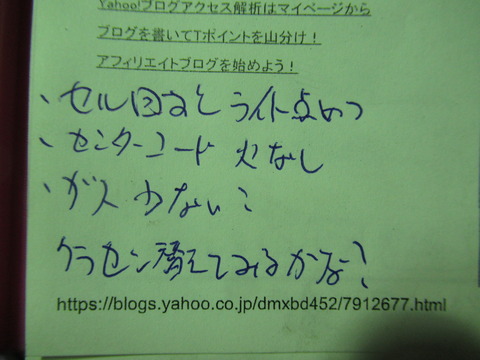 Yahoo!ブログアクセス解析はマイページから
ブログを書いてTポイントを山分け！
アフィリエイトブログを始めよう！
、セル回すとライト点めつ
、センターコード 火なし
、ガス 少ない？
クラセン替えてみるかな？
https://blogs.yahoo.co.jp/dmxbd452/7912677.html